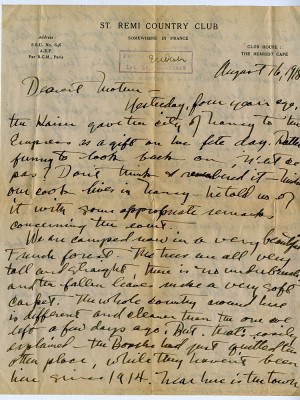 ST. REMI COUNTRY CLUB
SOMEWHERE IN FRANCE
Address
S.S.U. 646
A.E.F.
Par B.C.M., Paris
CLUB HOUSE:
THE NEAREST CAFE
August 16, 1918
Dearest Mother –
Yesterday, four years ago,
the Kaiser gave the city of Nancy to the
Empress as a gift on her fete day. Rather
funny to look back on, n'est ce
pas? Don't think I remembered it –
our cook lives in Nancy – he told us of
it with some appropriate remarks
concerning the count.
We are camped now in a very beautiful
French forest. The trees are all very
tall and straight, there is no underbrush
and the fallen leaves make a very soft
carpet. The whole country around here
is different and cleaner than the one we
left a few days ago. But that's easily
explained – the Boche had just quitted the
other place, while they haven't been
here since 1914. Near here is the town